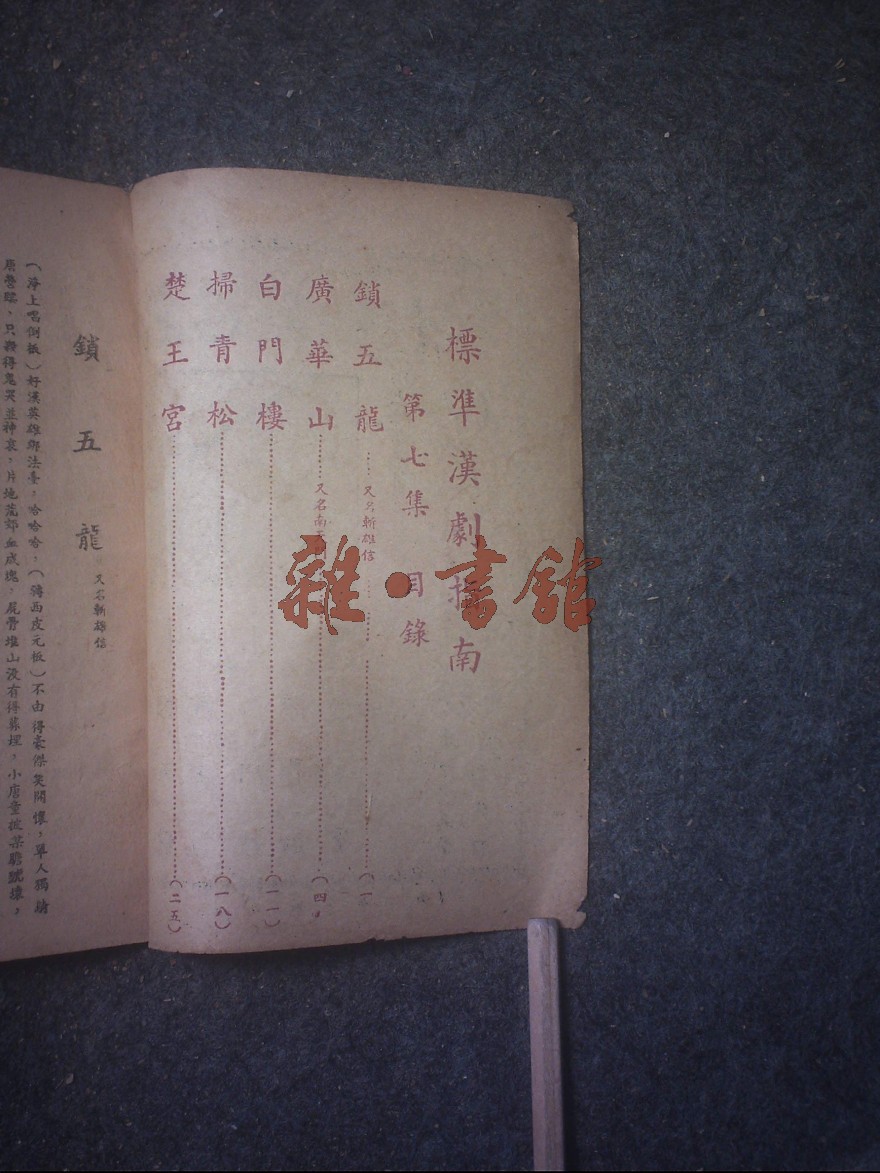 標準漢劇指南
第七集 目錄
鎖五龍……又名斬雄信……(一
廣華山……又名南……(四
白門樓……(一一)
掃青松……(一八)
楚王宮……(二五)
雜·書館
鎖五龍 又名斬雄信
(淨上唱倒板)好漢英雄綁法臺,哈哈哈,(簿西皮元板)不由得豪傑笑開懷,單人獨槍
唐營踹,只殺得鬼哭並神哀,片地荒郊血成塊,屍骨堆山沒有得葬埋,小唐童被某膽號壞,